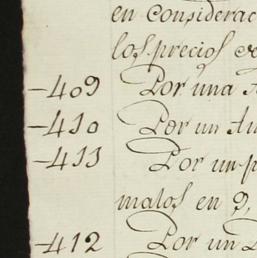 en considerac
los precios de
-409 Por una
-410 Por un
-411 Por un
malos en 9.
-412 Por un